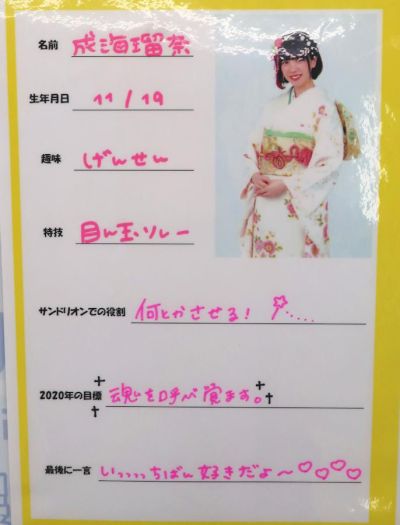 名前 成海瑠奈
生年月日 11/19
趣味 げんせん
特技 目ん玉ソレー
サンドリオンでの役割 何とかさせる!
2020年の目標 魂を呼び覚ます。
最後に一言 いっっっっちばん好きだよ〜♡♡♡♡